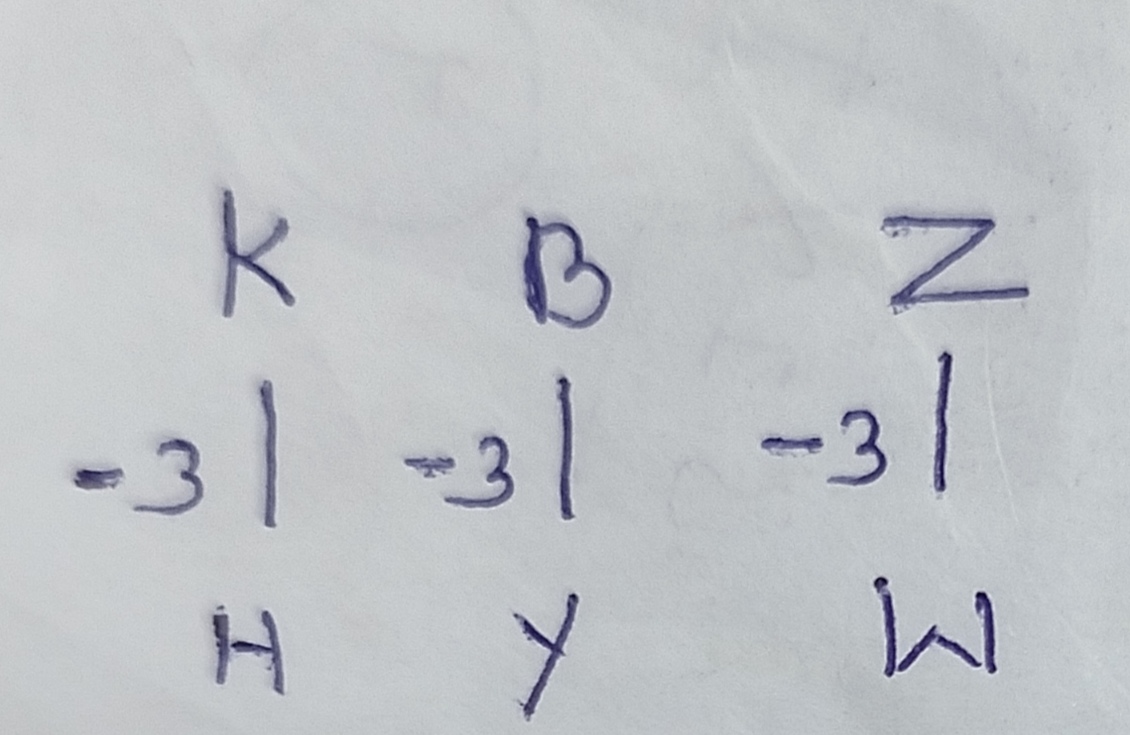 K B Z
-3| -3| -3|
H Y W